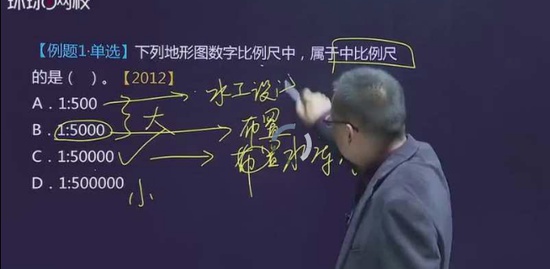 环球网校
【例题1·单选】下列地形图数字比例尺中，属于中比例尺
的是（ ）。【2012】
A．1:500
水工设计
大
B．1:5000
布置
C．1:50000
布置水库
D．1:500000
小